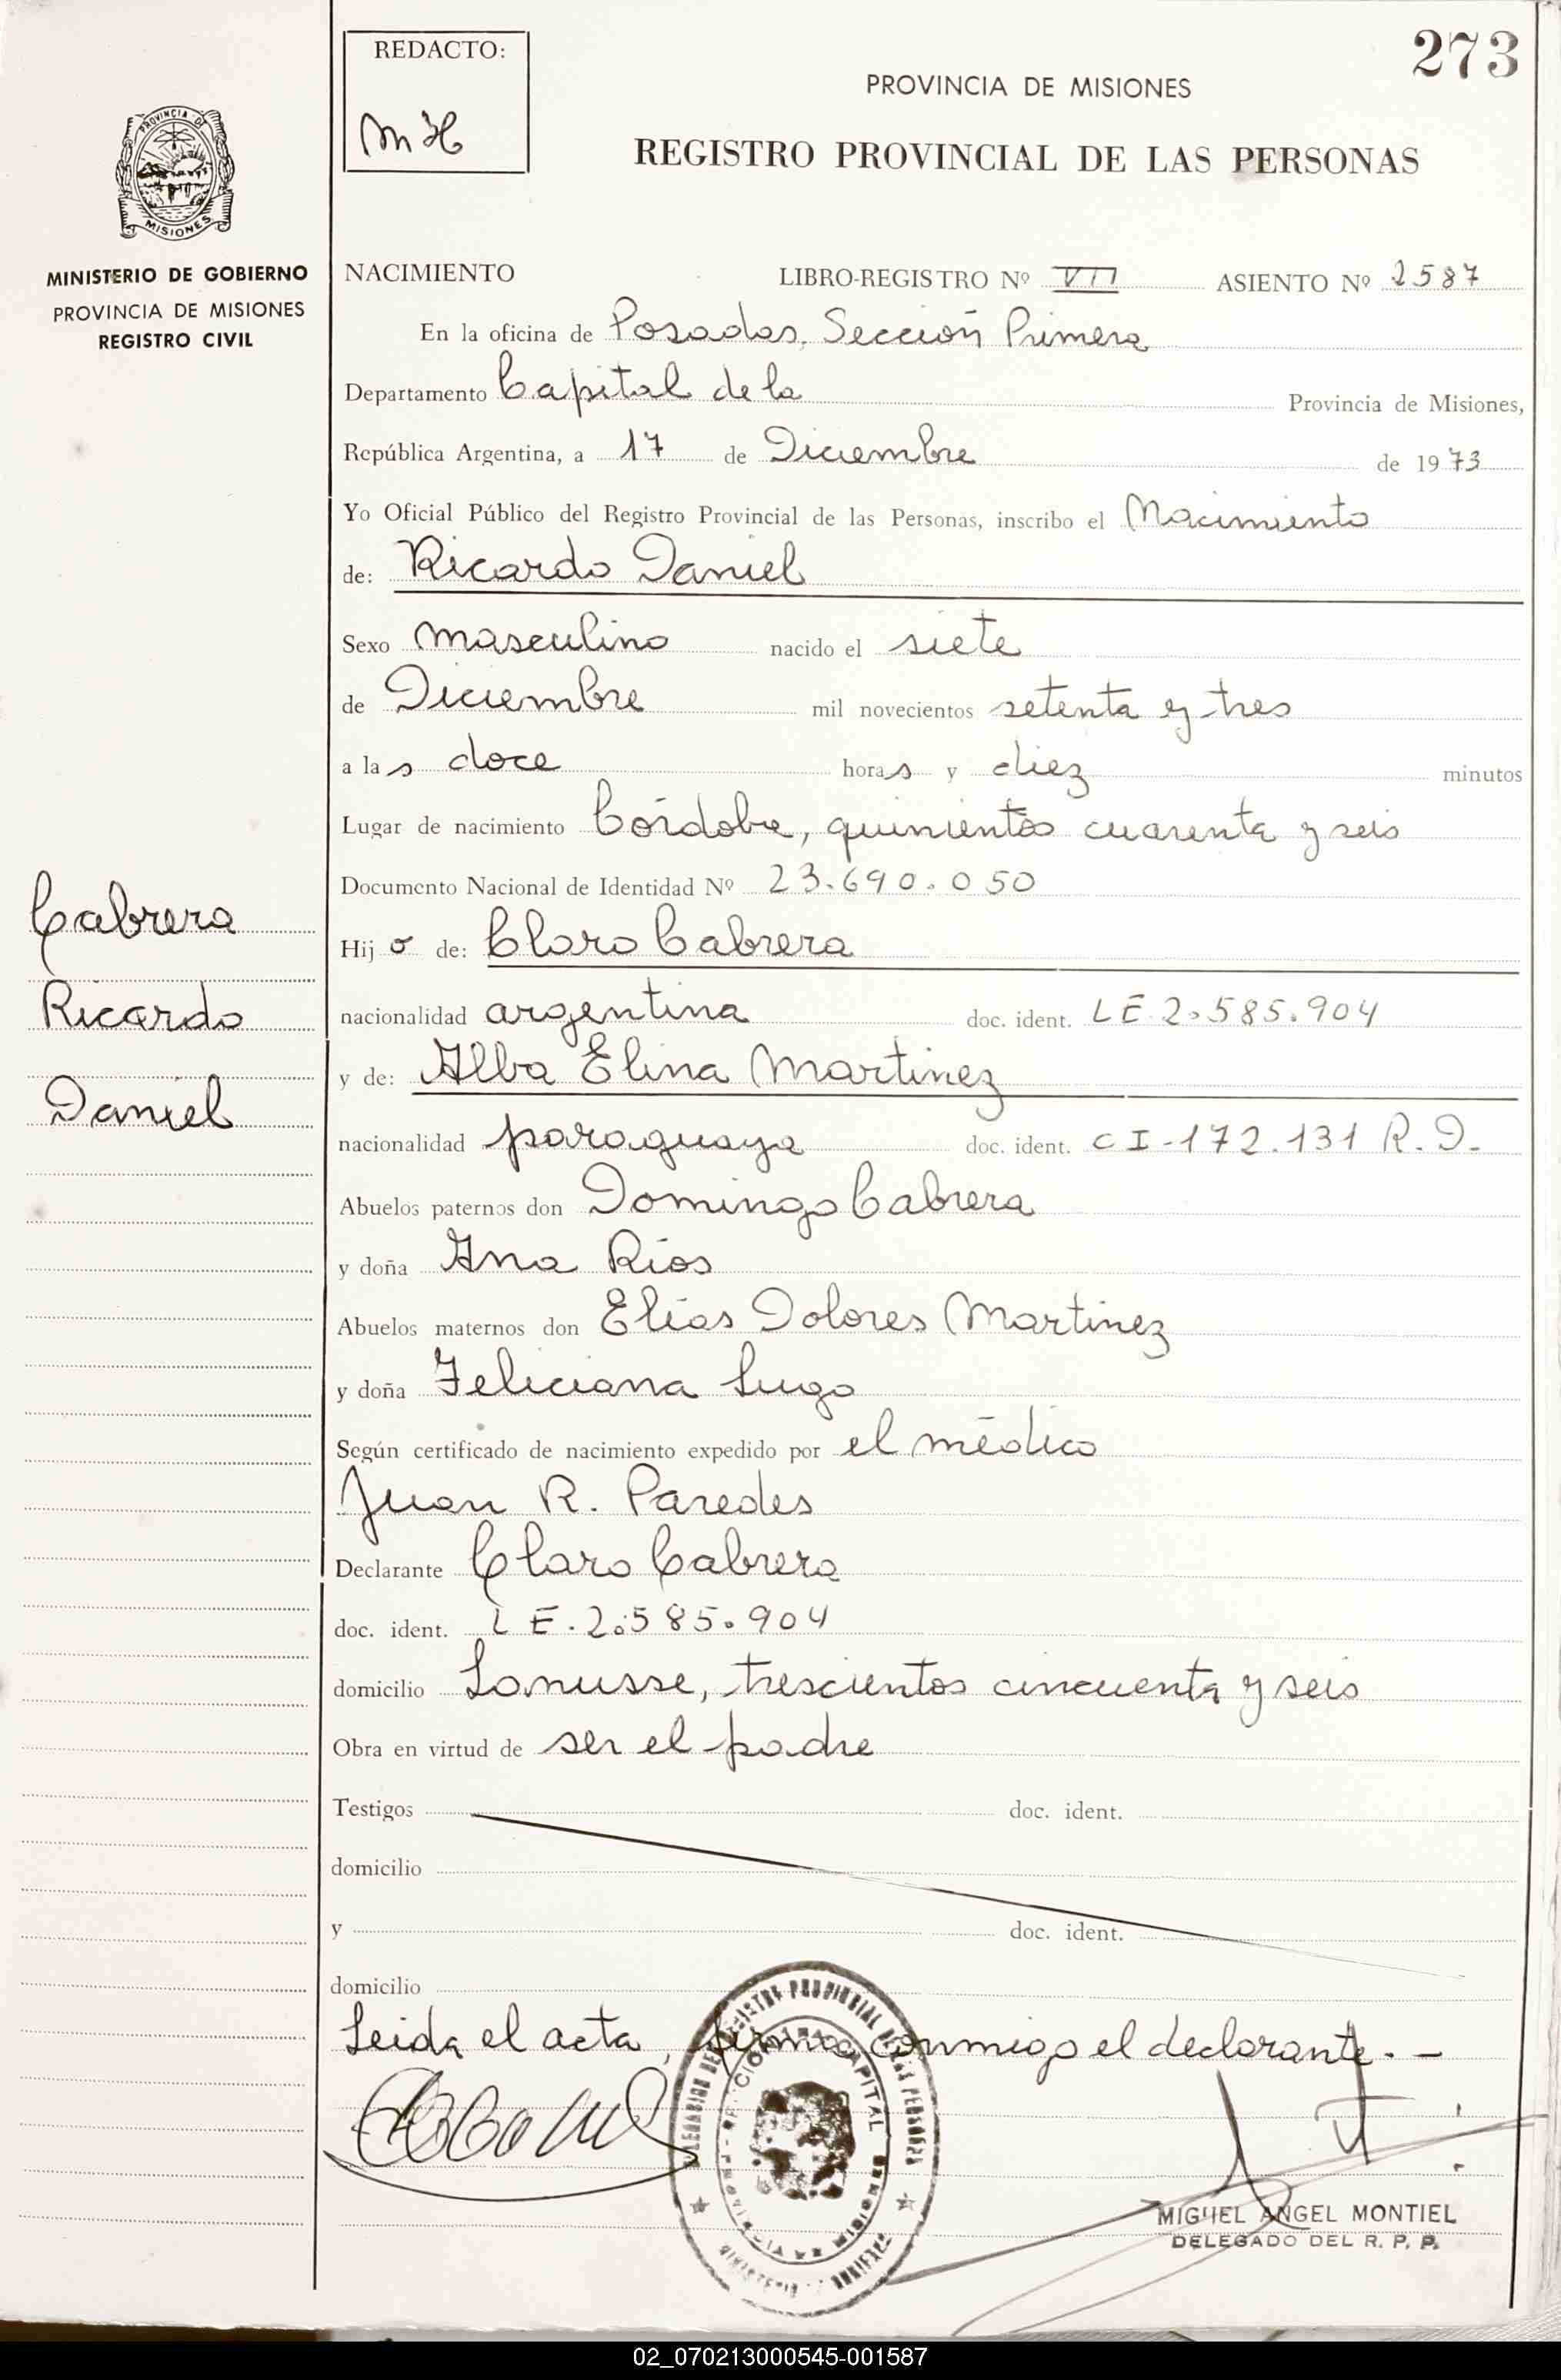 273
REDACTO:
MH
PROVINCIA DE MISIONES
REGISTRO PROVINCIAL DE LAS PERSONAS
PROVINCIA D
MISIONES
MINISTERIO DE GOBIERNO
PROVINCIA DE MISIONES
REGISTRO CIVIL
NACIMIENTO LIBRO-REGISTRO Nº VII ASIENTO Nº 2587
En la oficina de Posadas, Sección Primera
Departamento Capital de la Provincia de Misiones,
República Argentina, a 17 de Diciembre de 1973
Yo Oficial Público del Registro Provincial de las Personas, inscribo el Nacimiento
de: Ricardo Daniel
Sexo masculino nacido el siete
de Diciembre mil novecientos setenta y tres
a las doce horas y diez minutos
Lugar de nacimiento Córdoba, quinientos cuarenta y seis
Documento Nacional de Identidad Nº 23.690.050
Cabrera
Ricardo
Daniel
Hijo de: Claro Cabrera
nacionalidad argentina doc. ident. LE 2.585.904
y de: Alba Elina Martinez
nacionalidad paraguaya doc. ident. CI-172.131 R.D.
Abuelos paternos don Domingo Cabrera
y doña Ana Ríos
Abuelos maternos don Elías Dolores Martinez
y doña Feliciana Lugo
Según certificado de nacimiento expedido por el médico
Juan R. Paredes
Declarante Claro Cabrera
doc. ident. LE.2.585.904
domicilio Lanusse, trescientos cincuenta y seis
Obra en virtud de ser el padre
Testigos doc. ident.
domicilio
y doc. ident.
domicilio
Leida el acta, firma conmigo el declarante. -
MIGUEL ANGEL MONTIEL
DELEGADO DEL R. P. P.
02_070213000545-001587